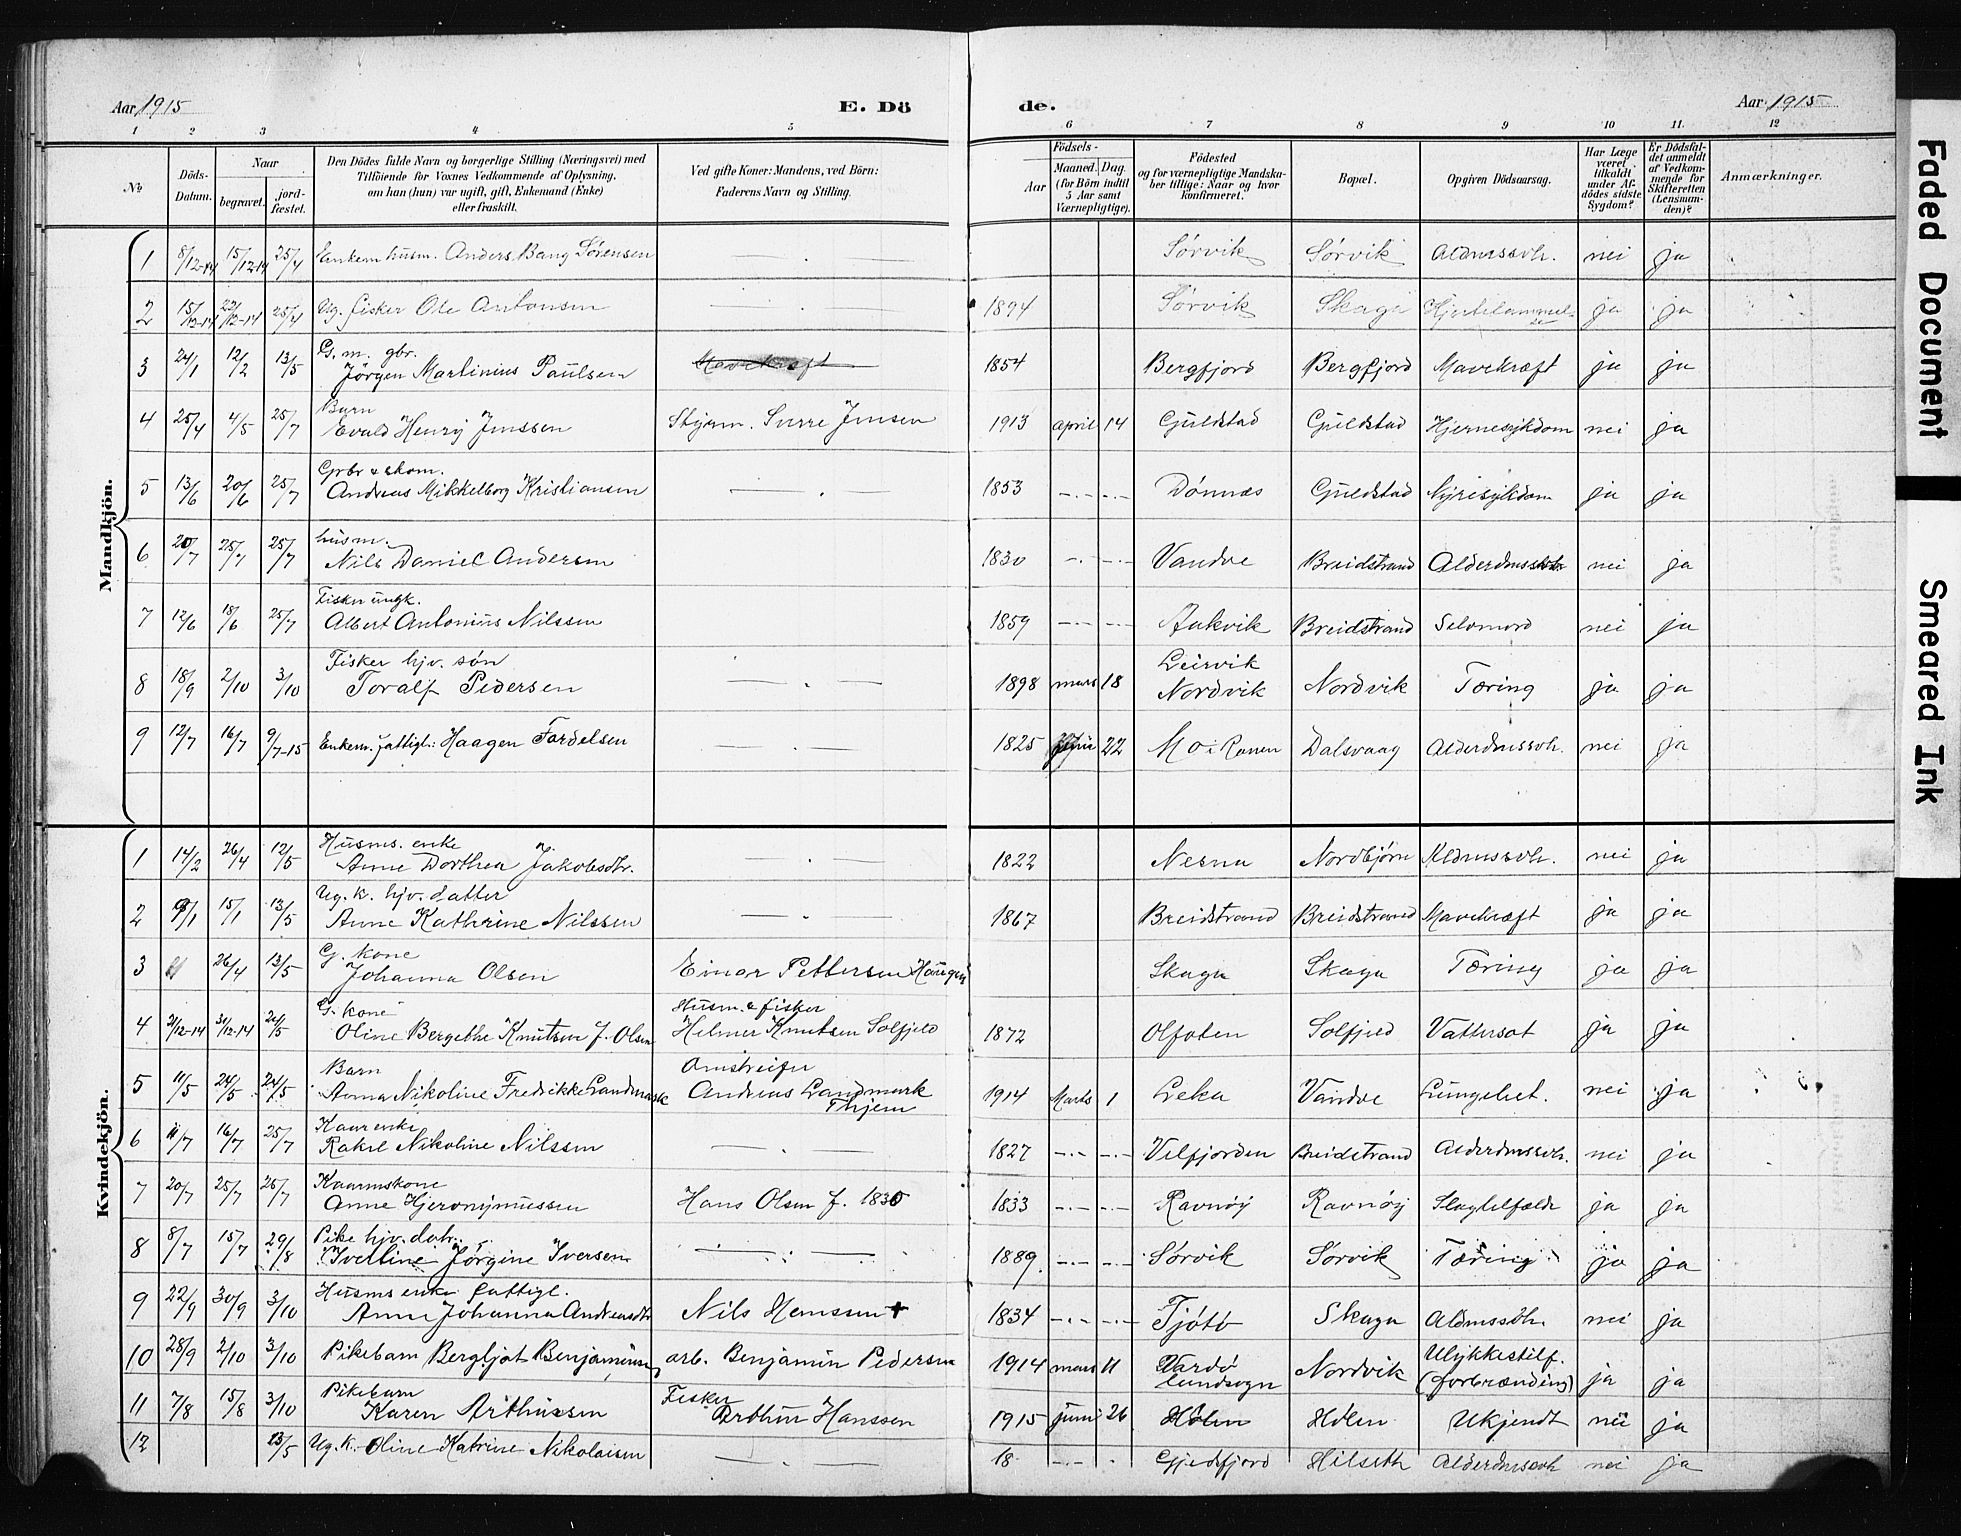 Aar 1915
E. Dö
de.
Aar 1915
1 2 3 4 5 6 7 8 9 10 11. 12
№
Döds-Datum.
Naar
begravet.
jord-fæstet.
Den Dödes fulde Navn og borgerlige Stilling (Næringsvei) med
Tilföiende for Voxnes Vedkommende af Oplysning,
om han (hun) var ugift, gift, Enkemand (Enke)
eller fraskilt.
Ved gifte Koner: Mandens, ved Börn:
Faderens Navn og Stilling.
Födsels-
Aar
Maaned. Dag.
(for Börn indtil
5 Aar samt
Værnepligtige).
Födested
og for værnepligtige Mandska-
ber tillige: Naar og hvor
konfirmeret.
Bopæl.
Opgiven Dödsaarsag.
Har Læge
været
tilkaldt
under Af-
dödes sidste
Sygdom?
Er Dödsfal-
det anmeldt
af Vedkom-
mende for
Skifteretten
(Lensman-
den)?
Anmærkninger.
Mandkjön.
1 8/12-14 15/12-14 25/4 Enkem husm. Anders Bang Sørensen Sørvik Sørvik Aldrnssvh. nei ja
2 15/12-14 22/12-14 25/4 Ug. fisker Ole Antonsen 1894 Sørvik Skaga ja ja
3 24/1 12/2 13/5 G. m. gbr.
Jörgen Martinius Paulsen Mavekræft 1854 Bergfjord Bergfjord Mavekræft ja ja
4 25/4 4/5 25/7 Barn
Evald Henry Jenssen Styrm. Sverre Jensen 1913 april 14 Guldstad Guldstad Hjernesykdom nei ja
5 13/6 20/6 25/7 Grbr & skom.
Andreas Mikkelborg Kristiansen 1853 Dönnæs Guldstad Nyresykdom ja ja
6 20/7 25/7 25/7 husm.
Nils Daniel Andersen 1830 Vandve Breidstrand Alderdmssvh. nei ja
7 12/6 18/6 25/7 Fisker ungk.
Albert Antonius Nilssen 1859 Aakvik Breidstrand Selvmord nei ja
8 18/9 2/10 3/10 Fisker hjv. søn
Toralf Pedersen 1898 mars 18 Leirvik
Nordvik Nordvik Tæring ja ja
9 12/7 16/7 9/7-15 Enkem. fattigl: Haagen Fordelsen 1825 22 Mo i Ranen Dalsvaag Alderdmssvh. nei ja
Kvindekjön.
1 14/2 26/4 12/5 Husms. enke
Anne Dorthea Jakobsdtr. 1822 Nesna Nordbjørn Aldrnssvh. nei ja
2 9/1 15/1 13/5 Ug. k. hjv. datter
Anne Kathrine Nilssen 1867 Breidstrand Breidstrand Mavekræft ja ja
3 26/4 13/5 G. kone
Johanna Olsen Einar Pettersen Haugen Skaga Skaga Tæring ja ja
4 21/12-14 31/12-14 24/5 G. kone
Oline Bergethe Knutsen f. Olsen Husm. & fisker
Hilmer Knutsen Solfjeld 1872 Ofoten Solfjeld Vattersot ja ja
5 11/5 24/5 24/5 Barn
Anna Nikoline Fredrikke Landmark
Andreas Landmark
Thjem 1914 Marts 1 Leka Vandve Lungebet. nei ja
6 11/7 16/7 25/7 Kaarenke
Rakel Nikoline Nilssen 1827 Velfjorden Breidstrand Alderdmssvh. nei ja
7 20/7 25/7 25/7 Kaarmskone
Anne Hjeronymussen Hans Olsen f. 1830 1833 Ravnøy Ravnøy Slagtilfælde ja ja
8 8/7 15/7 29/8 Pike hjv. datr.
Ivertine Jørgine Iversen 1889 Sørvik Sørvik Tæring ja ja
9 22/9 30/9 3/10 Husms enke fattigl.
Anne Johanna Andreasdtr Nils Hanssen + 1834 Tjøtø Skaga Aldrnssvh. nei ja
10 28/9 2/10 3/10 Pikebarn Bergljot Benjaminsen arb. Benjamin Pedersen 1914 mars 11 Vardø
landsogn Nordvik Ulykkestilf.
(forbrænding) ja ja
11 7/8 15/8 3/10 Pikebarn
Karen Arthursen Fisker
Arthur Hanssen 1915 juni 26 Holen Holen Ukjendt nei ja
12 13/5 Ug. k. Oline Katrine Nikolaisen 18 Gjedsfjord Hilseth Alderdmssvh nei ja
Faded Document
Smeared Ink